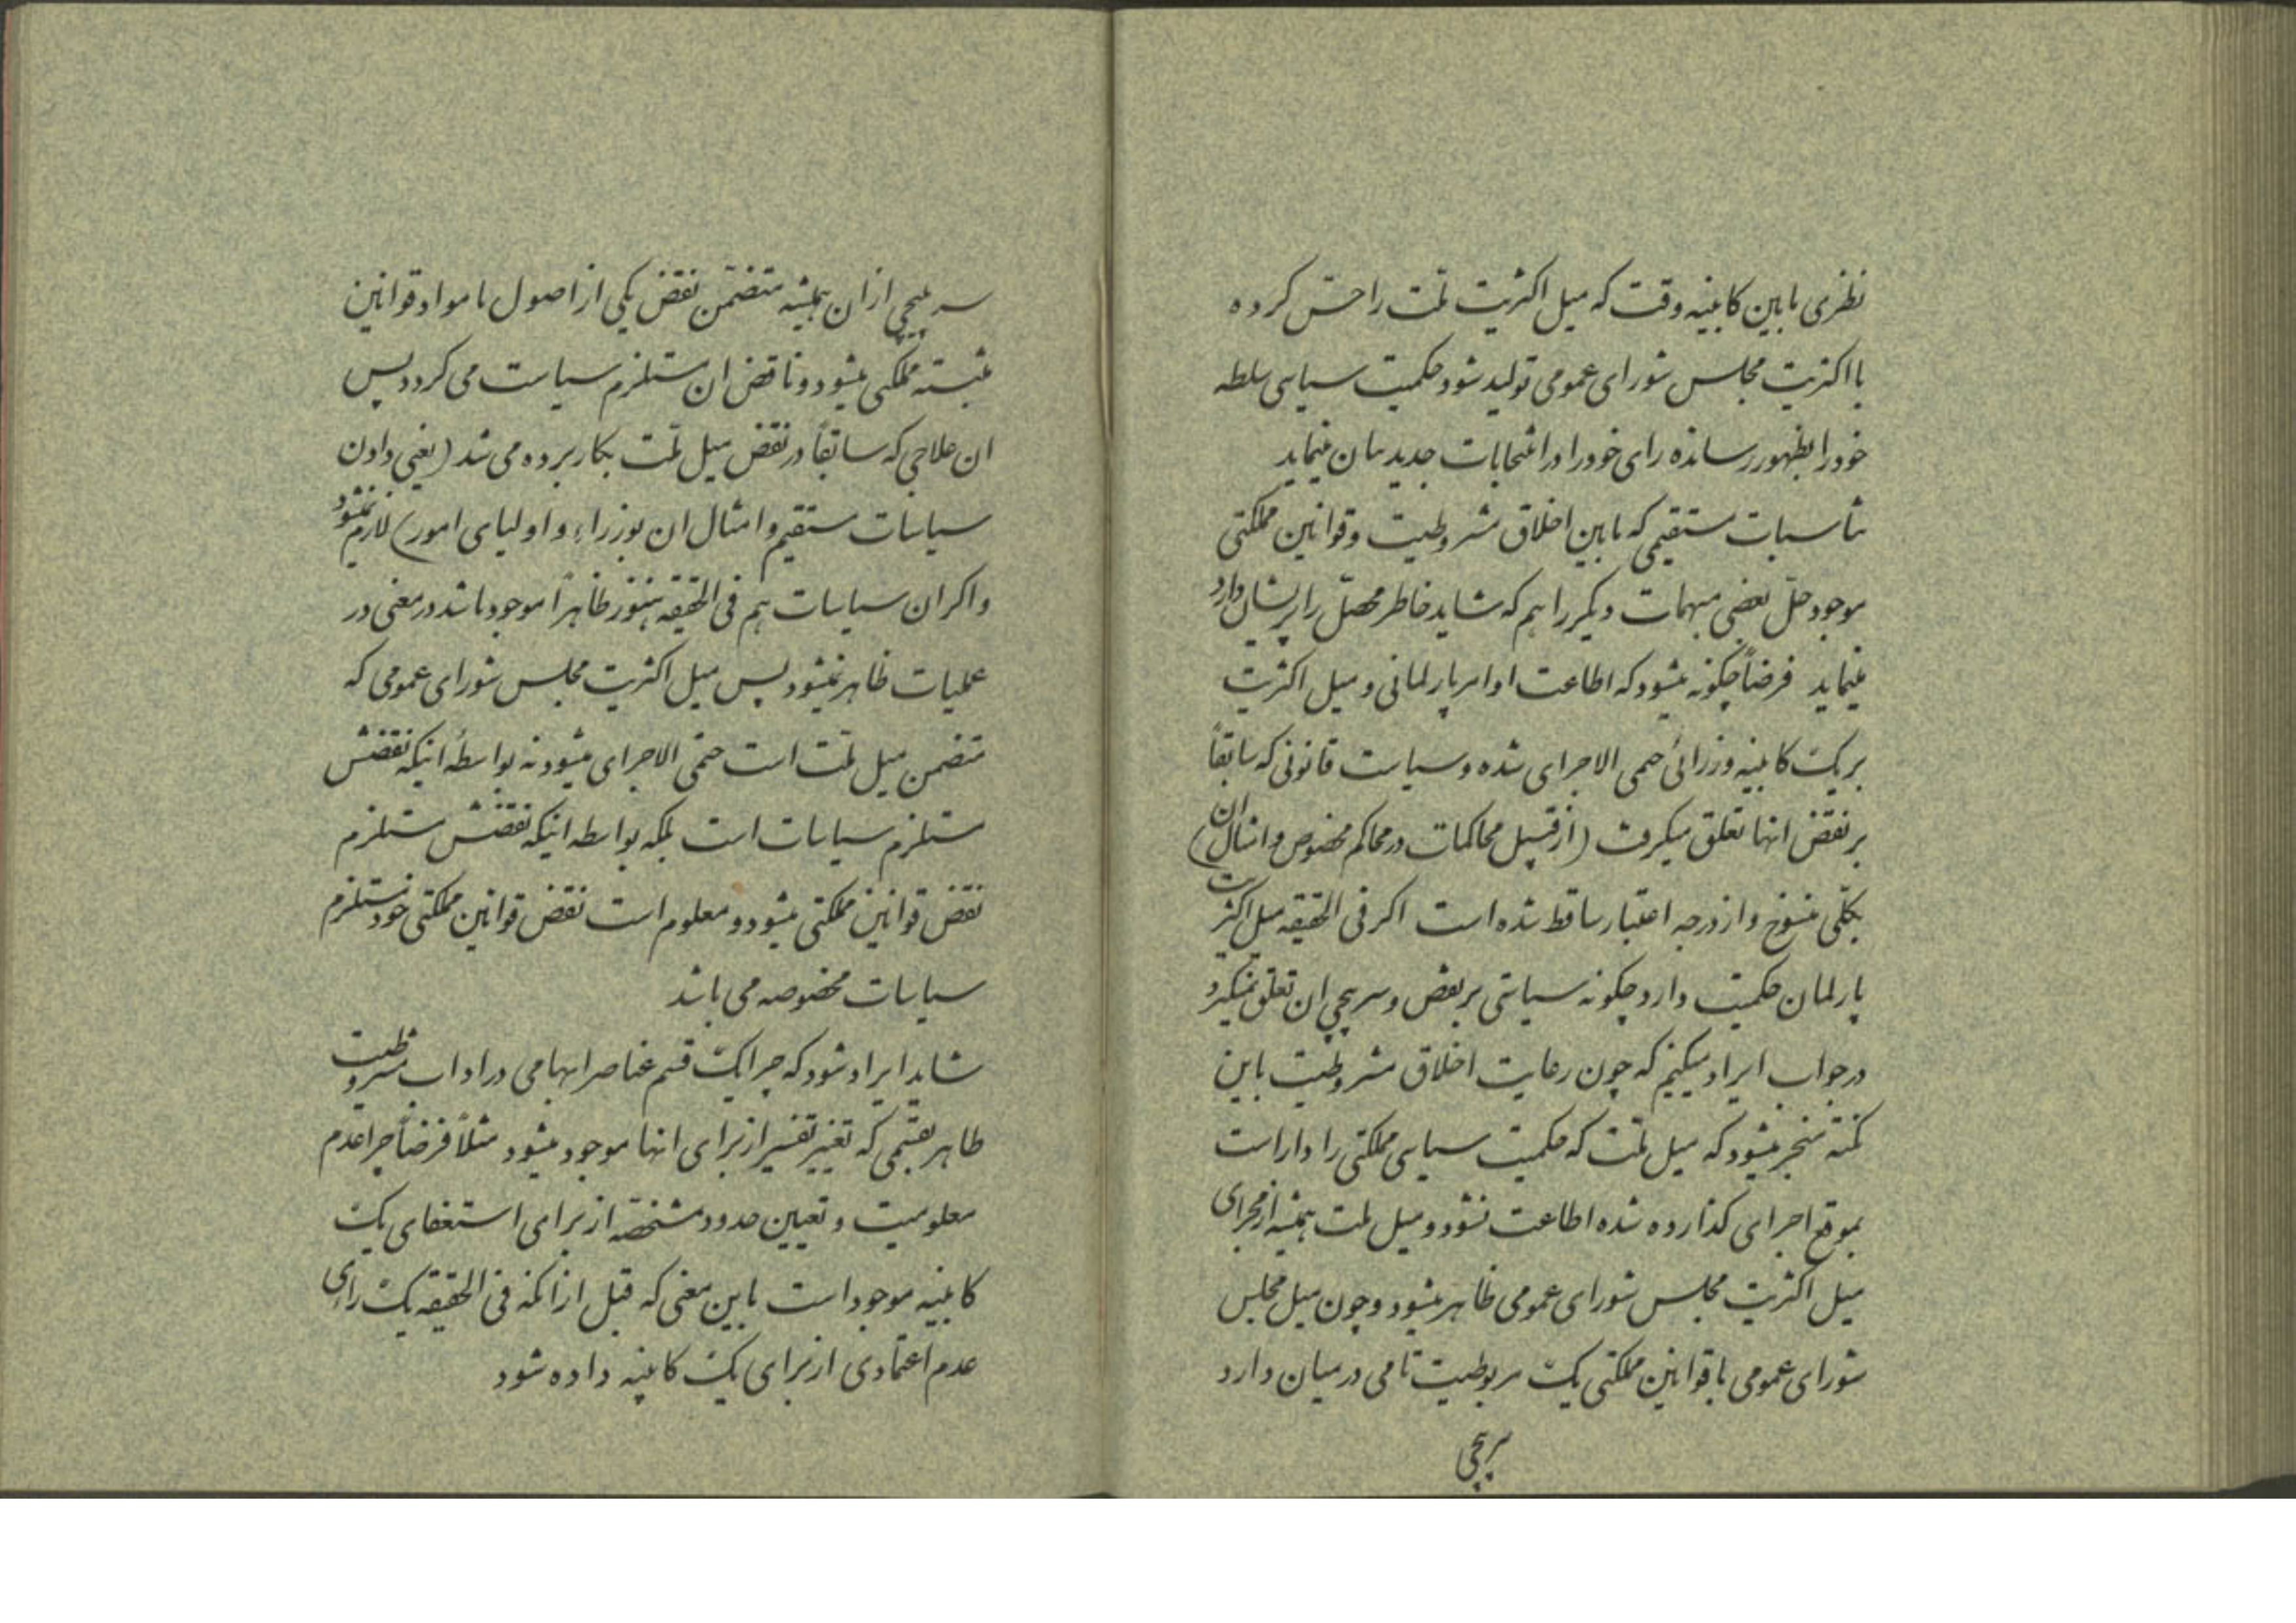 نظری مابین کابینه وقت که میل اکثریت ملت را حسّ کرده
با اکثریت مجلس شورای عمومی تولید شود حکمیت سیاسی سلطه
خود را بظهور رسانده رای خود را در انتخابات جدید بیان مینماید
مناسبات مستقیمی که مابین اخلاق مشروطیت و قوانین مملکتی
موجود حلّ بعضی مبهمات دیگر را هم که شاید خاطر محصّل را پریشان دارد
مینماید فرضاً چگونه میشود که اطاعت اوامر پارلمانی و میل اکثریت
بر یک کابینه وزرائی حتمی الاجرای شده و سیاست قانونی که سابقاً
بر نقض انها تعلق میگرفت (از قبیل محاکمات در محاکم مخصوص و امثال ان)
بکلّی منسوخ و از درجه اعتبار ساقط شده است اگر فی الحقیقه میل اکثریت
پارلمان حکمیت دارد چگونه سیاستی بر نقض و سرپیچی ان تعلق نمیگیرد
در جواب ایراد میکنیم که چون رعایت اخلاق مشروطیت باین
نکته منجر میشود که میل ملت که حکمیت سیاسی مملکتی را داراست
بموقع اجرای گذارده شده اطاعت نشود و میل ملت همیشه از مجرای
میل اکثریت مجلس شورای عمومی ظاهر میشود و چون میل مجلس
شورای عمومی با قوانین مملکتی یک مربوطیت تامی در میان دارد
سرپیچی
سرپیچی از ان همیشه متضمّن نقض یکی از اصول یا مواد قوانین
مثبته مملکتی میشود و ناقض ان مستلزم سیاست می گردد پس
ان علاجی که سابقاً در نقض میل ملّت بکار برده می شد (یعنی دادن
سیاسات مستقیم و امثال ان بوزراء و اولیای امور) لازم نمیشود
و اگر ان سیاسات هم فی الحقیقه هنوز ظاهراً موجود باشد در معنی در
عملیات ظاهر نمیشود پس میل اکثریت مجلس شورای عمومی که
متضمن میل ملّت است حتمی الاجرای میشود نه بواسطه اینکه نقضش
مستلزم سیاسات است بلکه بواسطه اینکه نقضش مستلزم
نقض قوانین مملکتی میشود و معلوم است نقض قوانین مملکتی خود مستلزم
سیاسات مخصوصه می باشد
شاید ایراد شود که چرا یک قسم عناصر ابهامی در اداب مشروطیت
ظاهر بقسمی که تغییر تفسیر از برای انها موجود میشود مثلاً فرضاً چرا عدم
معلومیت و تعیین حدود مشخصه از برای استعفای یک
کابینه موجود است باین معنی که قبل از انکه فی الحقیقه یک رای
عدم اعتمادی از برای یک کابینه داده شود